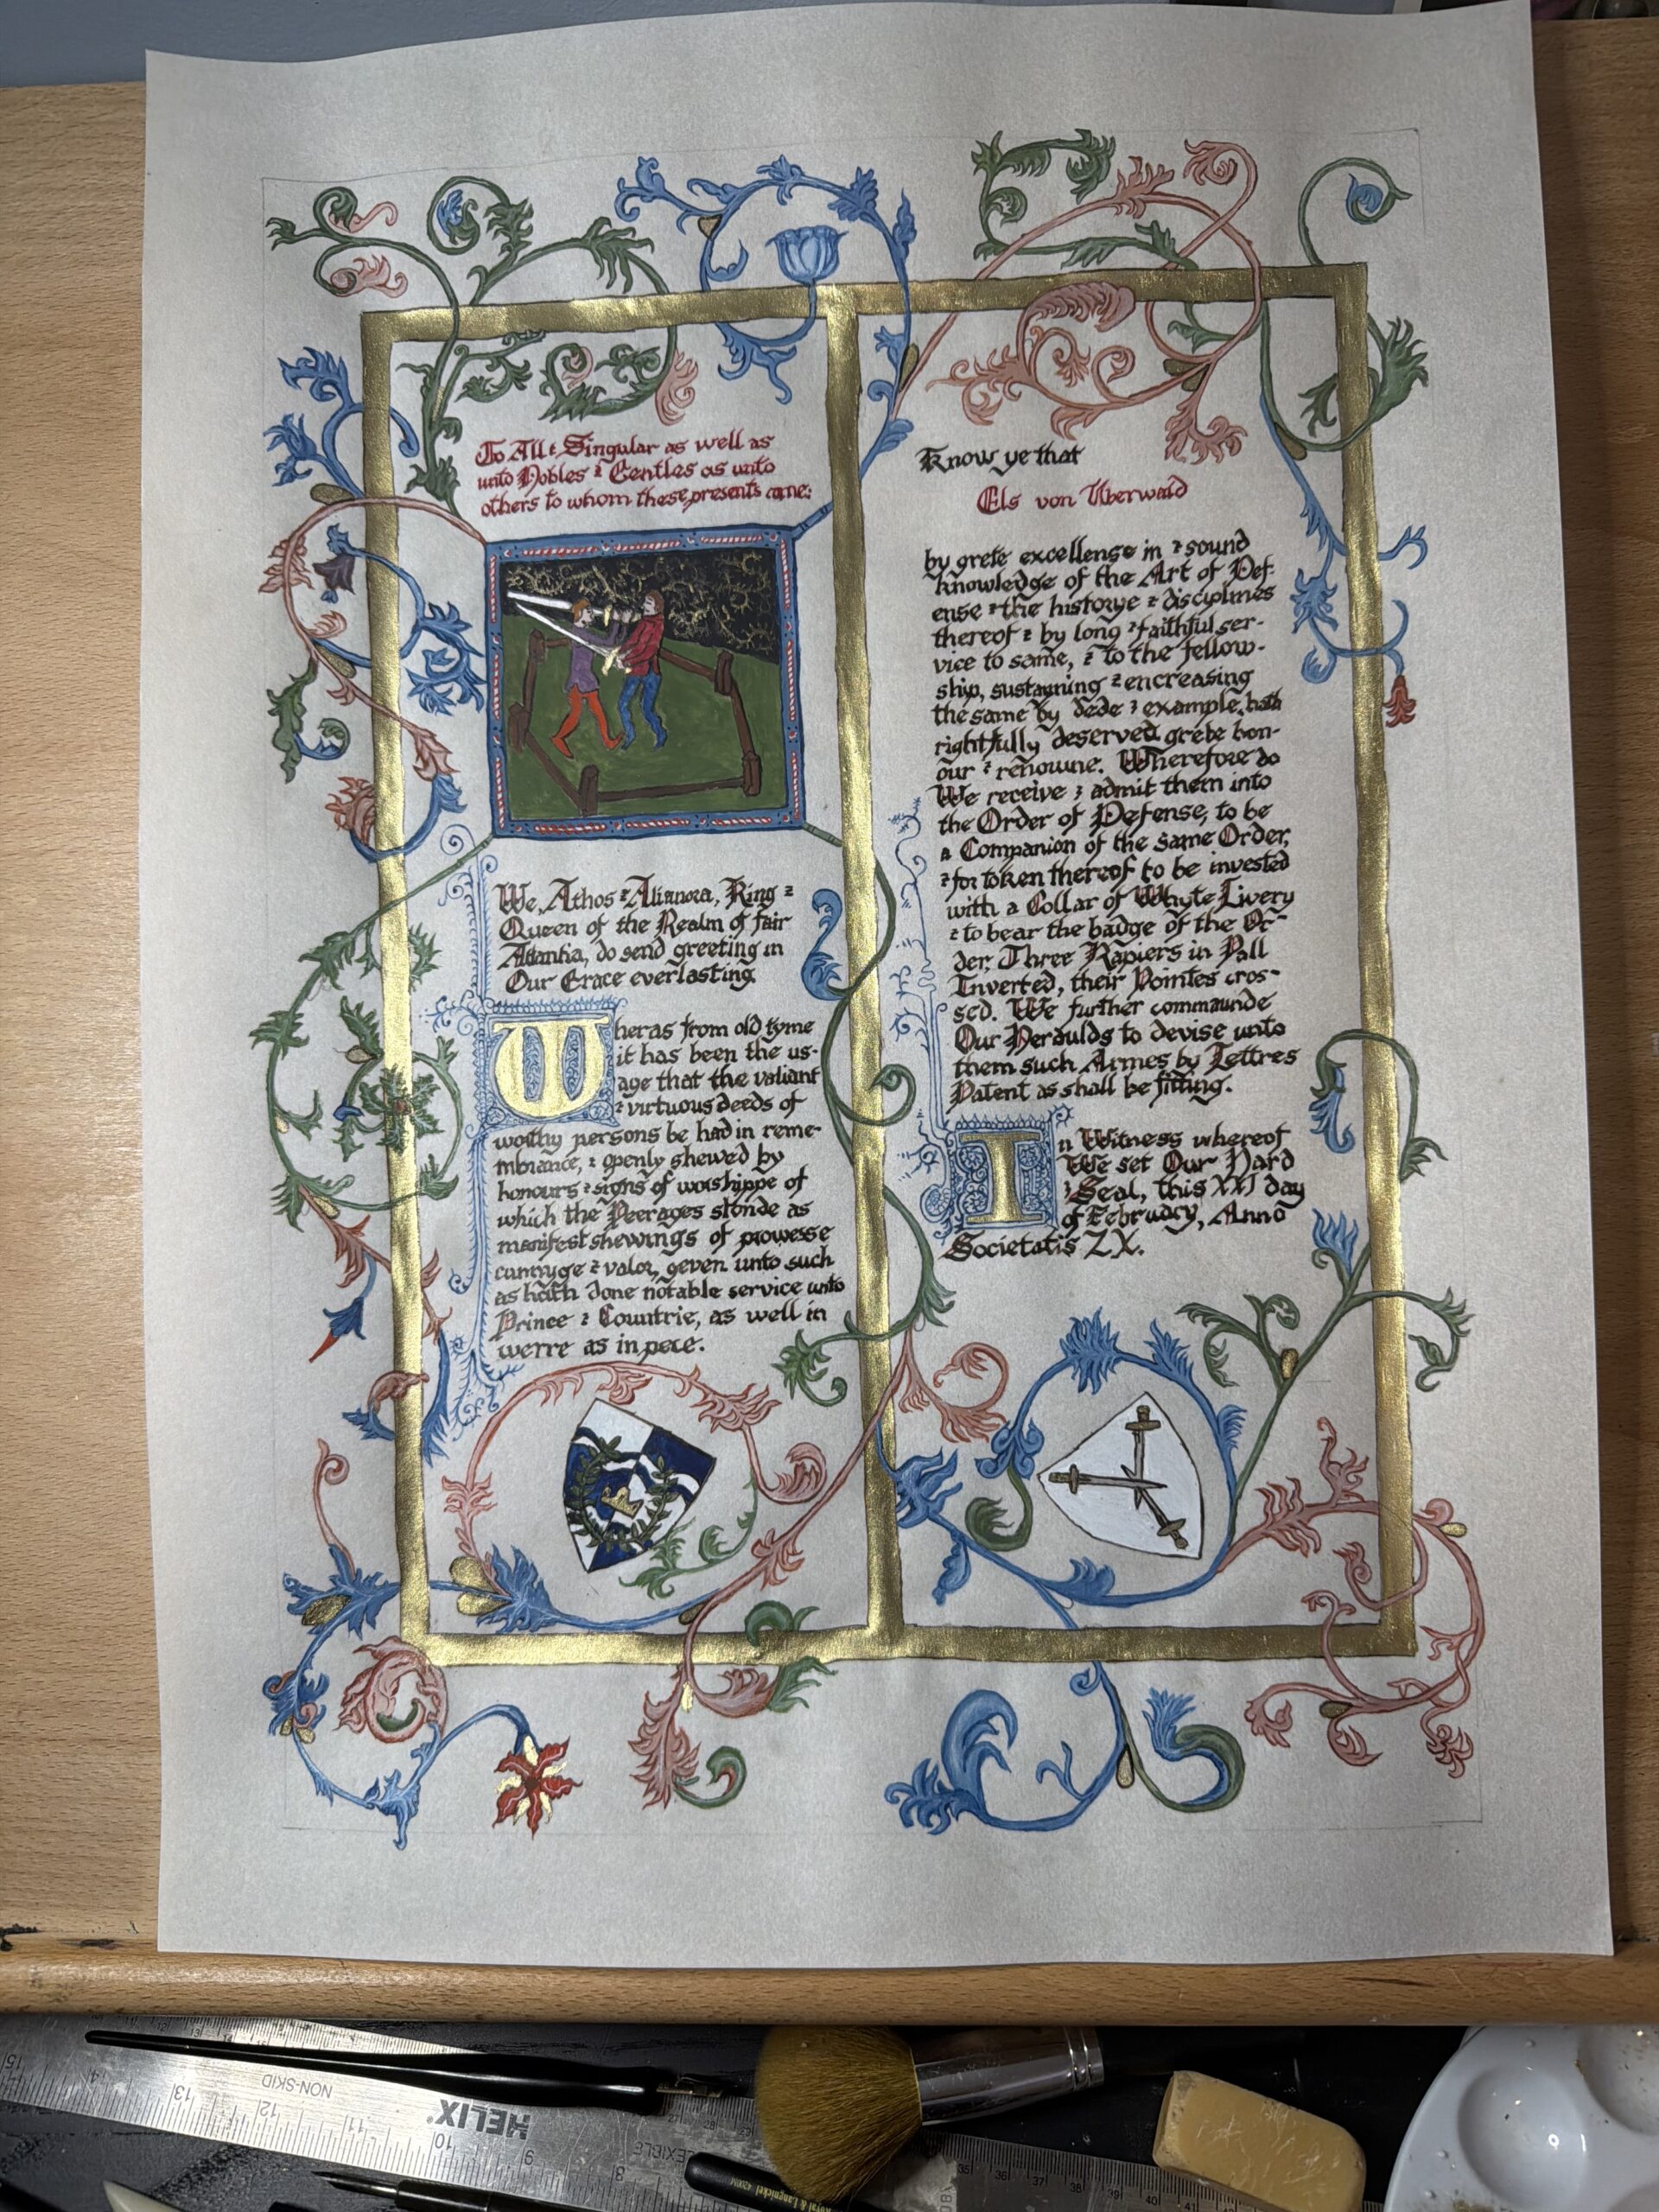 To All & Singular as well as
unto Nobles & Gentles as unto
others to whom these presents come:
We, Athos & Alianora, King &
Queen of the Realm of fair
Atlantia, do send greeting in
Our Grace everlasting.
Wheras from old tyme
it has been the us-
age that the valiant
& virtuous deeds of
worthy persons be had in reme-
mbrance, & openly shewed by
honours & signs of worshippe of
which the Peerages stonde as
manifest shewings of prowesse
corrayge & valor, geven unto such
as hath done notable service unto
Prince & Countrie, as well in
werre as in pece.
Know ye that
Els von Uberwald
by grete excellense in & sound
knowledge of the Art of Def-
ense & the historye & disciplines
thereof & by long & faithful ser-
vice to same, & to the fellow-
ship, sustayning & encreasing
the same by dede & example, hath
rightfully deserved grete hon-
our & renowne. Wherefore do
We receive & admit them into
the Order of Defense, to be
a Companion of the same Order,
& for token thereof to be invested
with a Collar of Whyte Livery
& to bear the badge of the Or-
der, Three Rapiers in Pall
Inverted, their Pointes cros-
sed. We further commaunde
Our Heraulds to devise unto
them such Armes by Lettres
Patent as shall be fitting.
In Witness whereof
We set Our Hand
& Seal, this XXI day
of February, Anno
Societatis LX.
NON-SKID
HELIX
FLEXIBLE
15 14 13 12 11 10 9 8
35 36 37 38 39 40 41
Royal & Langnickel